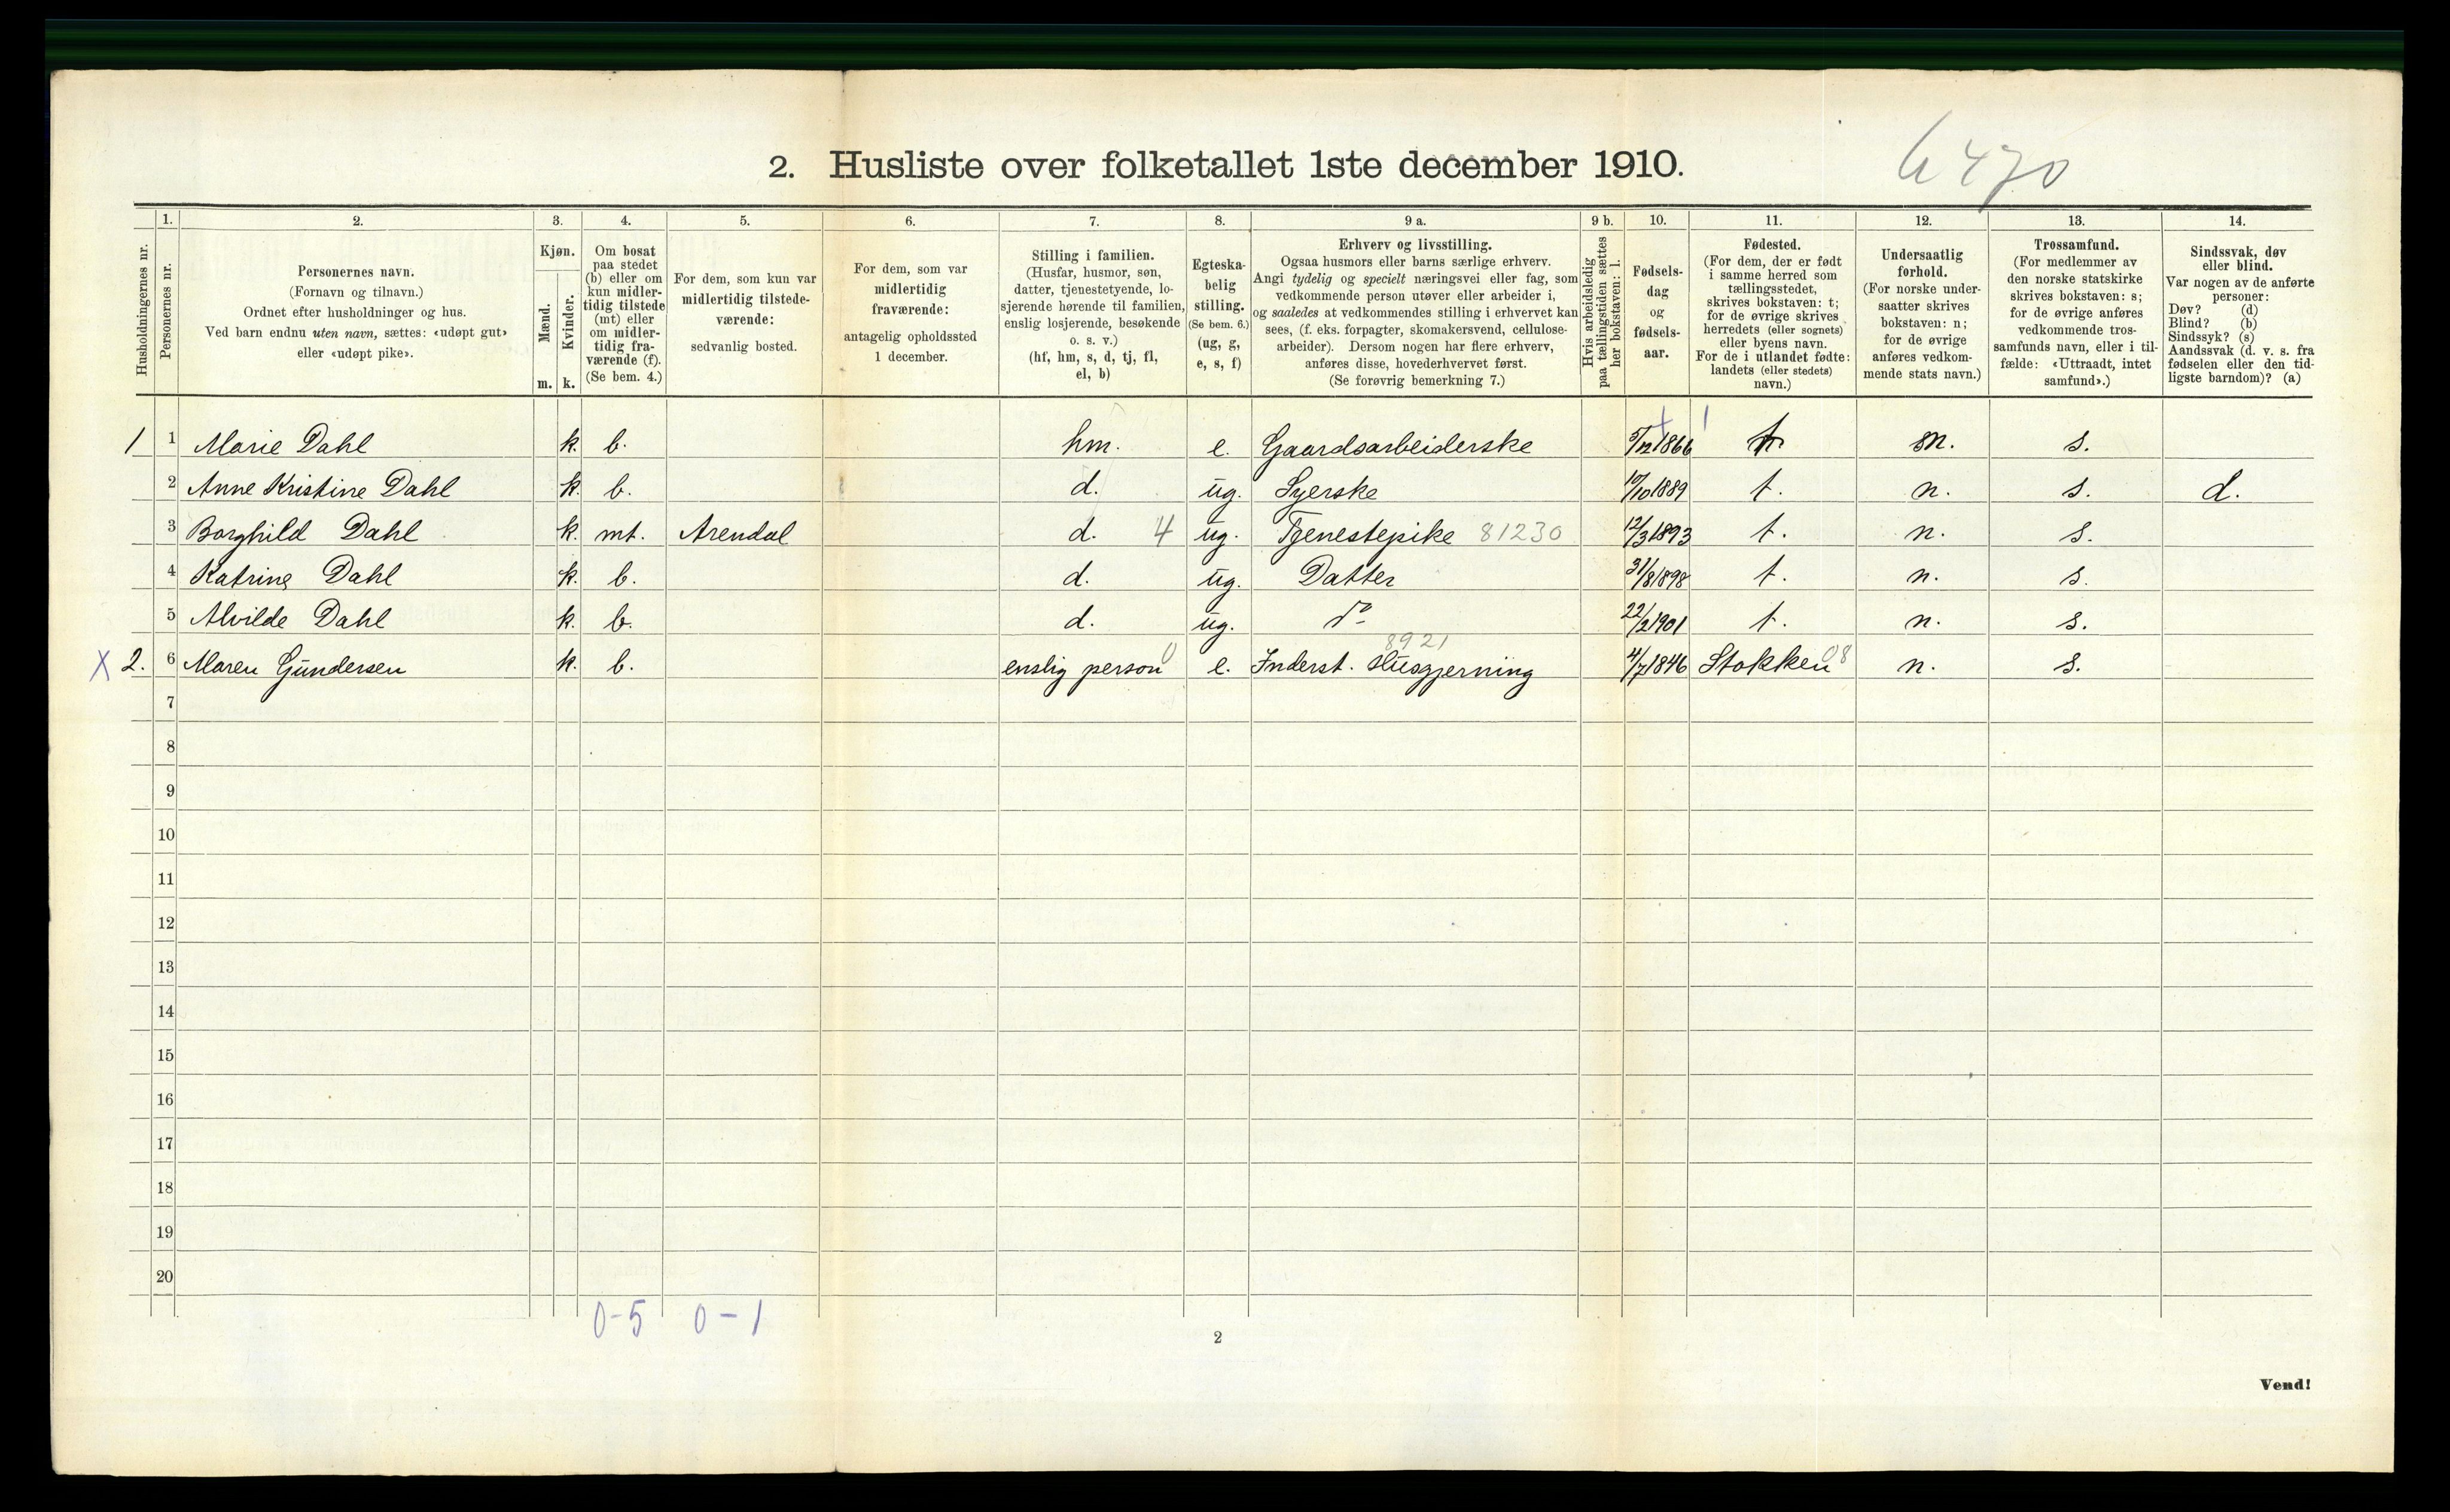 2. Husliste over folketallet 1ste december 1910.
6470
Husholdningernes nr.
1.
Personernes nr.
2.
Personernes navn.
(Fornavn og tilnavn.)
Ordnet efter husholdninger og hus.
Ved barn endnu uten navn, sættes: «udøpt gut»
eller «udøpt pike».
3.
Kjøn.
Mænd.
Kvinder.
m. k.
4.
Om bosat
paa stedet
(b) eller om
kun midler-
tidig tilstede
(mt) eller
om midler-
tidig fra-
værende (f).
(Se bem. 4.)
5.
For dem, som kun var
midlertidig tilstede-
værende:
sedvanlig bosted.
6.
For dem, som var
midlertidig
fraværende:
antagelig opholdssted
1 december.
7.
Stilling i familien.
(Husfar, husmor, søn,
datter, tjenestetyende, lo-
sjerende hørende til familien,
enslig losjerende, besøkende
o. s. v.)
(hf, hm, s, d, tj, fl,
el, b)
8.
Egteska-
belig
stilling.
(Se bem. 6.)
(ug, g,
e, s, f)
9 a.
Erhverv og livsstilling.
Ogsaa husmors eller barns særlige erhverv.
Angi tydelig og specielt næringsvei eller fag, som
vedkommende person utøver eller arbeider i,
og saaledes at vedkommendes stilling i erhvervet kan
sees, (f. eks. forpagter, skomakersvend, cellulose-
arbeider). Dersom nogen har flere erhverv,
anføres disse, hovederhvervet først.
(Se forøvrig bemerkning 7.)
9 b.
Hvis arbeidsledig
paa tællingstiden sættes
her bokstaven: l.
10.
Fødsels-
dag
og
fødsels-
aar.
11.
Fødested.
(For dem, der er født
i samme herred som
tællingsstedet,
skrives bokstaven: t;
for de øvrige skrives
herredets (eller sognets)
eller byens navn.
For de i utlandet fødte:
landets (eller stedets)
navn.)
12.
Undersaatlig
forhold.
(For norske under-
saatter skrives
bokstaven: n;
for de øvrige
anføres vedkom-
mende stats navn.)
13.
Trossamfund.
(For medlemmer av
den norske statskirke
skrives bokstaven: s;
for de øvrige anføres
vedkommende tros-
samfunds navn, eller i til-
fælde: «Uttraadt, intet
samfund».)
14.
Sindssvak, døv
eller blind.
Var nogen av de anførte
personer:
Døv? (d)
Blind? (b)
Sindssyk? (s)
Aandssvak (d. v. s. fra
fødselen eller den tid-
ligste barndom)? (a)
1 1 Marie Dahl k. b. hm. e. Gaardsarbeiderske 5/12 1866 t. n. s.
2 Anne Kristine Dahl k. b. d. ug. Syerske 10/10 1889 t. n. s. d.
3 Borghild Dahl k. mt. Arendal d. 4 ug. Tjenestepike 81230 12/3 1893 t. n. s.
4 Katrine Dahl k. b. d. ug. Datter 31/8 1898 t. n. s.
5 Alvilde Dahl k. b. d. ug. do 22/2 1901 t. n. s.
8921
X 2. 6 Maren Gundersen k. b. enslig person 0 e. Inderst. Husgjerning 4/7 1846 Stokken 08 n. s.
7
8
9
10
11
12
13
14
15
16
17
18
19
20
0-5 0-1
2
Vend!